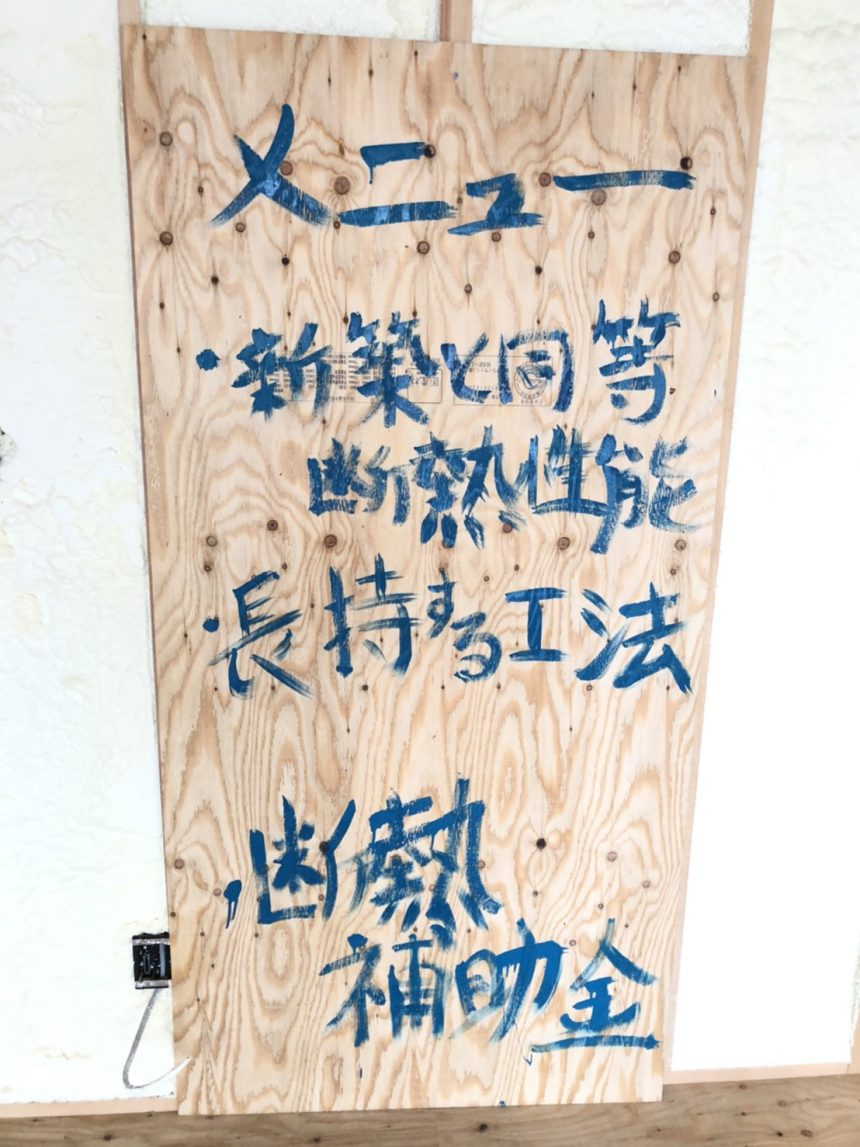 メニュー
・新築と同等
断熱性能
・長持する工法
・断熱
補助金